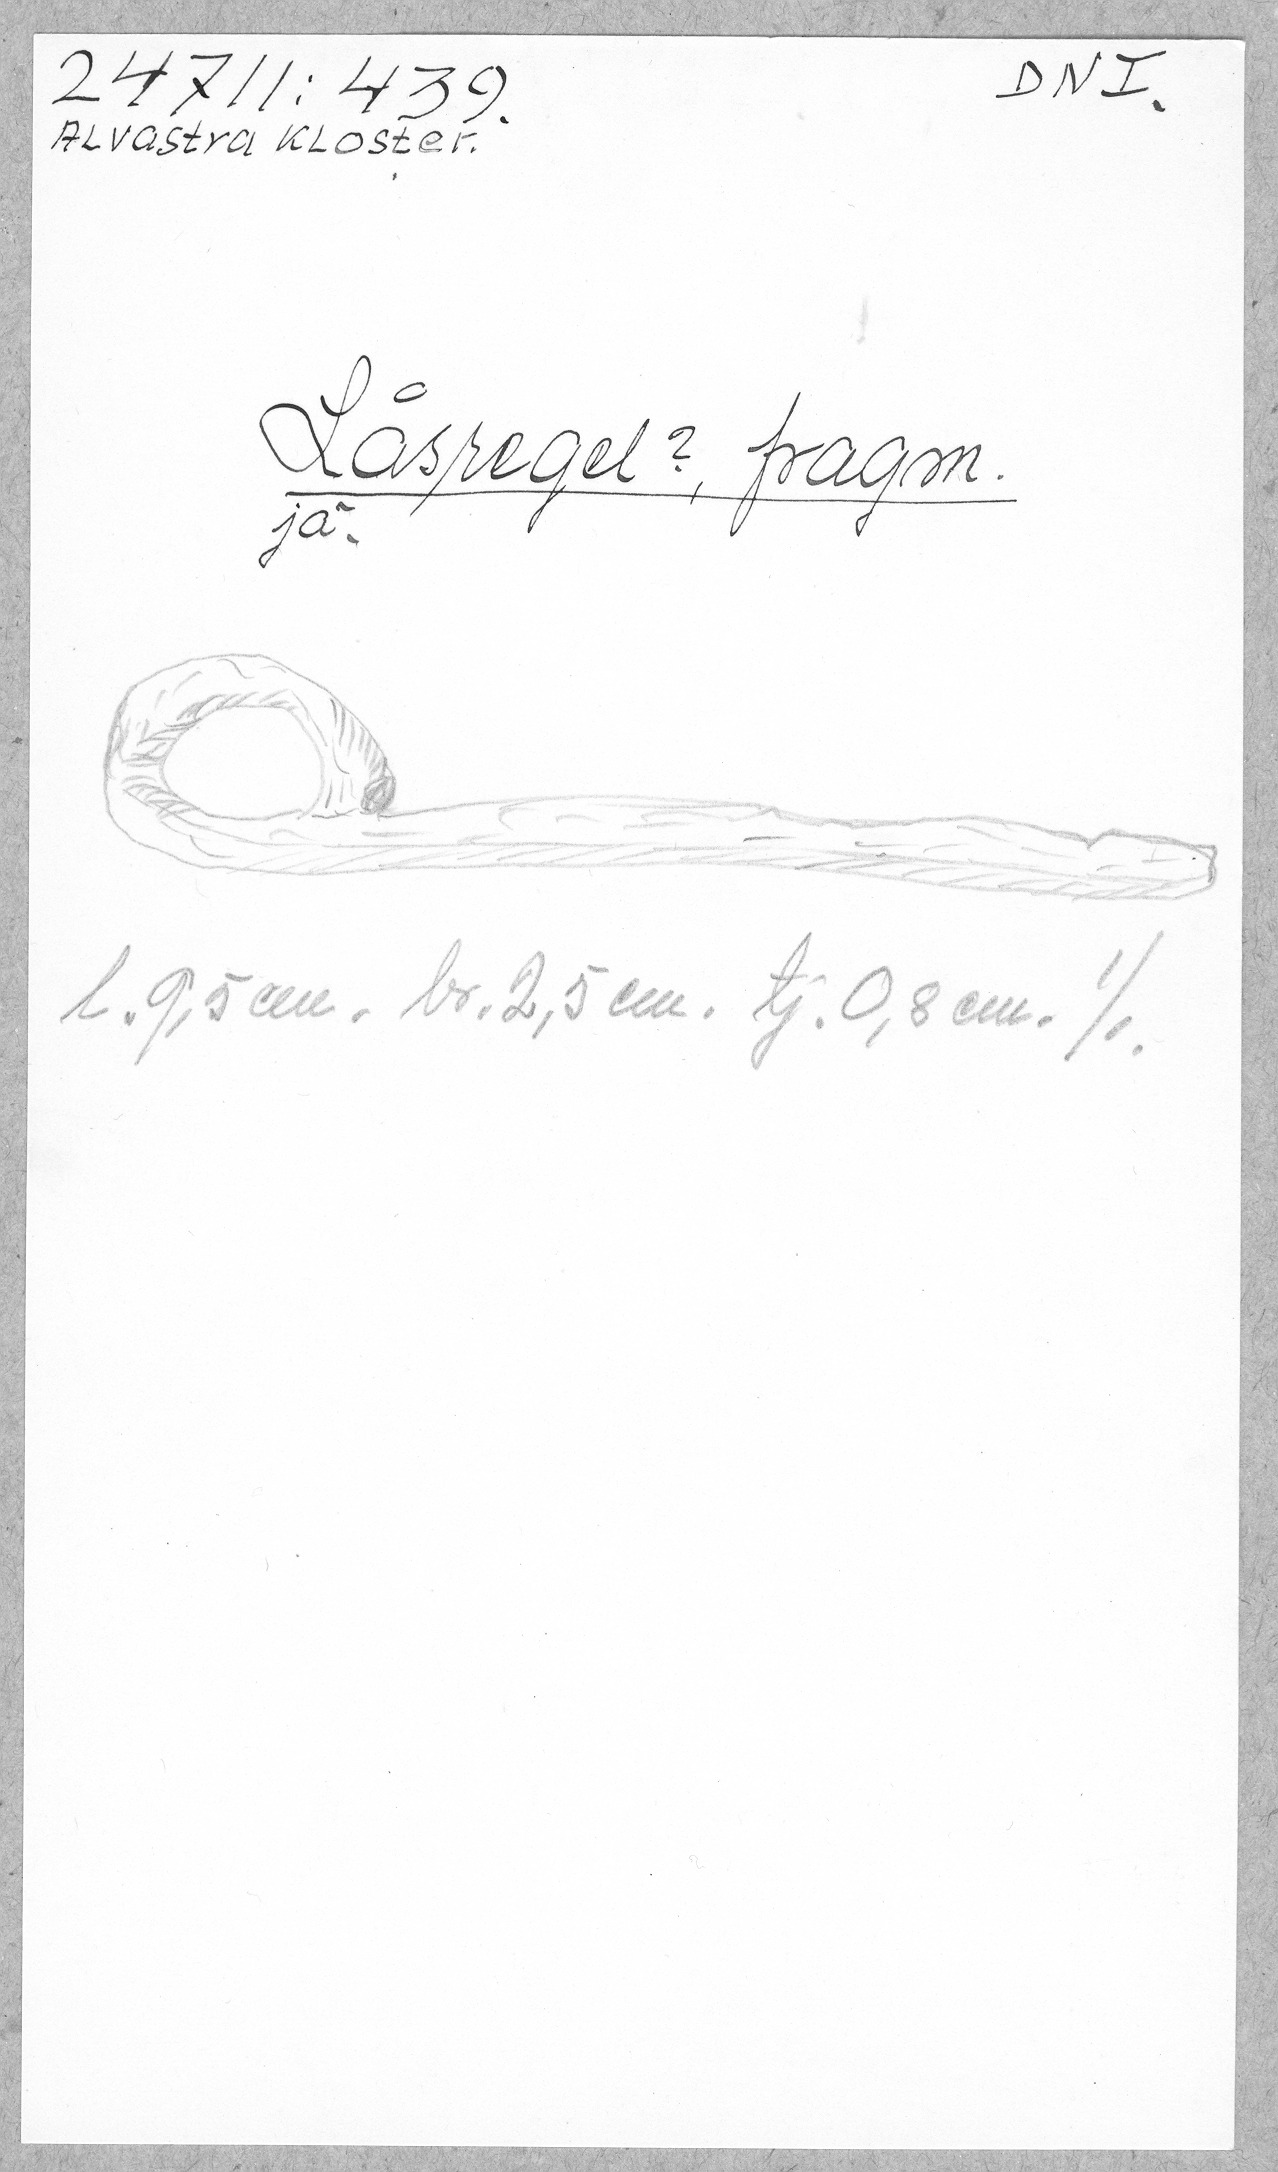 24711:439.
DNI.
Alvastra Kloster.
Låsregel?, fragm.
jä.
l. 9,5 cm. br. 2,5 cm. tj. 0,8 cm. 1/1.